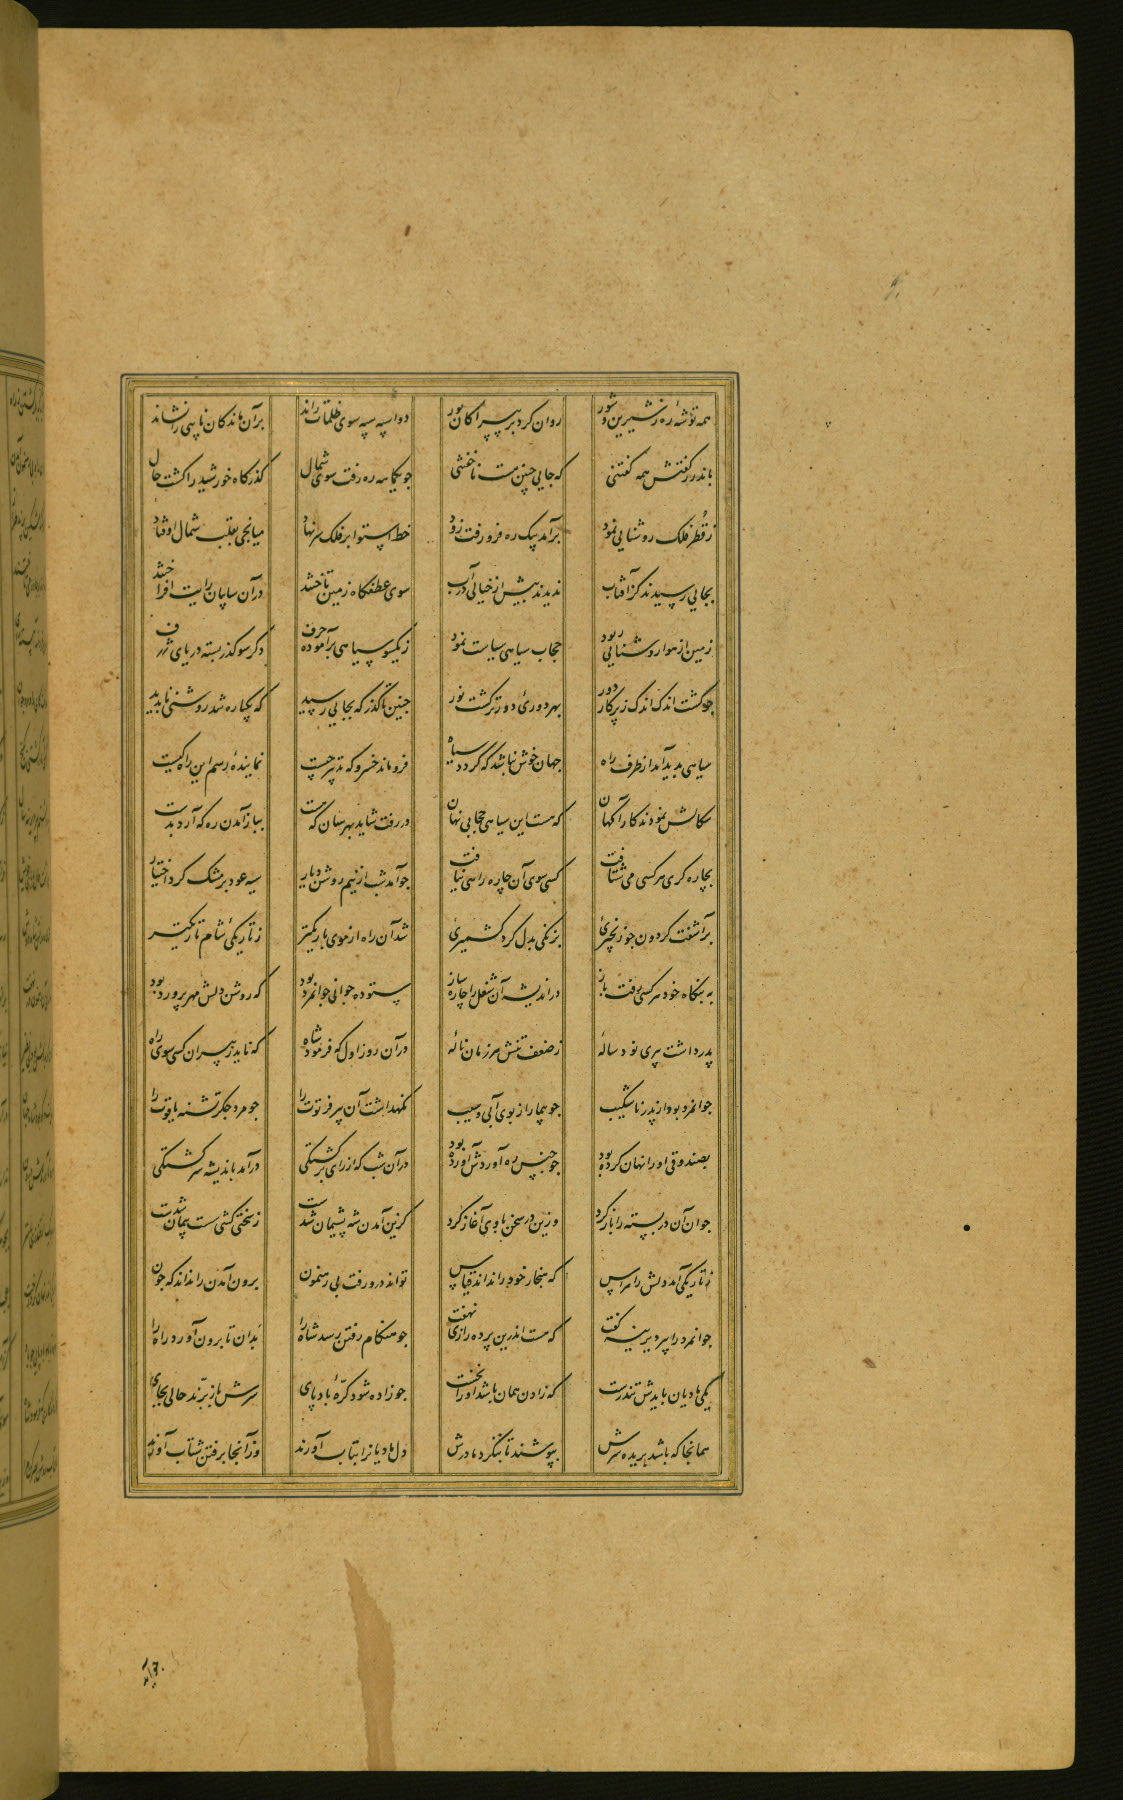 همه توشهٔ ره ز شیرین و شور روان کرد بر بیسراکان بور دو اسپه سپه سوی ظلمات راند بر آن ماندگان نایبی را نشاند
باندرز گفتش همه گفتنی که جایی چنین هست ناخفتنی چو یکماهه ره رفت سوی شمال گذرگاه خورشید را گشت حال
ز قطر فلک روشنایی نمود برآمد بیک ره فرو رفت زود خط استوا بر فلک سر نهاد میانجی بقلب شمال اوفتاد
بجایی رسیدند کز آفتاب ندیدند بیش از خیالی در آب سوی عطفگاه زمین تاختند در آن سایبان رایت افراختند
زمین از هوا روشنایی ربود حجاب سیاهی سیاست نمود ز یکسو سیاهی برآموده حرف دگر سو گذر بسته دریای ژرف
چو گشت اندک اندک ز پرگار دور بهر دورئ دورتر گشت نور چنین تا گذرگه بجایی رسید که یکباره شد روشنی ناپدید
سیاهی پدید آمد از طرف راه جهان خوش نباشد که گردد سیاه فرو ماند خسرو که تدبیر چیست نمایندهٔ رسم این راه کیست
سگالش نمودند کارآگهان که هست این سیاهی حجابی نهان در رفت شاید بهر سان که هست بباز آمدن ره که آرد بدست
بچاره گری هر کسی می شتافت کسی سوی آن چاره راهی نیافت چو آمد شب از نیم روشن دیار سیه عود بر مشک کرد اختیار
برآشفت گردون چو زنجیرئ بزنگی بدل کرد کشمیرئ شد آن راه از موی باریکتر ز تاریکئ شام تاریکتر
به بنگاه خود هر کسی رفت باز در اندیشه آن شغل را چاره ساز ستوده جوانی جوانمرد بود که روشن دلش مهر پرورد بود
پدر داشت پیری نود ساله ز ضعف تنش هر زمان ناله در آن روز اول که فرمود شاه که ناید ز پیران کسی سوی راه
جوانمرد بود از پدر ناشکیب چو بیمار از بوی آبی و سیب نگهداشت آن پیر فرتوت را چو مرد جگر تشنه یاقوت را
بصندوقی او را نهان کرده بود چو جنس ره آوردش آورده بود در آن شب که از رای برگشتگی درآمد باندیشه سرگشتگی
جوان آن در بسته را باز کرد وزین در سخن با وی آغاز کرد کزین آمدن شه پشیمان شدست ز سختی کشی سست پیمان شدست
ز تاریکی آمد دلش را هراس که هنجار خود را نداند قیاس تواند درو رفت بی رهنمون برون آمدن را نداند که چون
جوانمرد را پیر دیرینه گفت که هست اندرین پرده رازی نهفت چو هنگام رفتن رسد شاه را بدان تا برون آورد راه را
یکی مادیان بایدش تندرست که زادن همان باشد او را نخست چو زاده شود کرّهٔ بادپای سرش باز برّند حالی بجای
همانجا که باشد بریده سرش بپوشند تا بنگرد مادرش دل مادیان زا بتاب آورند وز آنجا برفتن شتاب آورند
چو آید